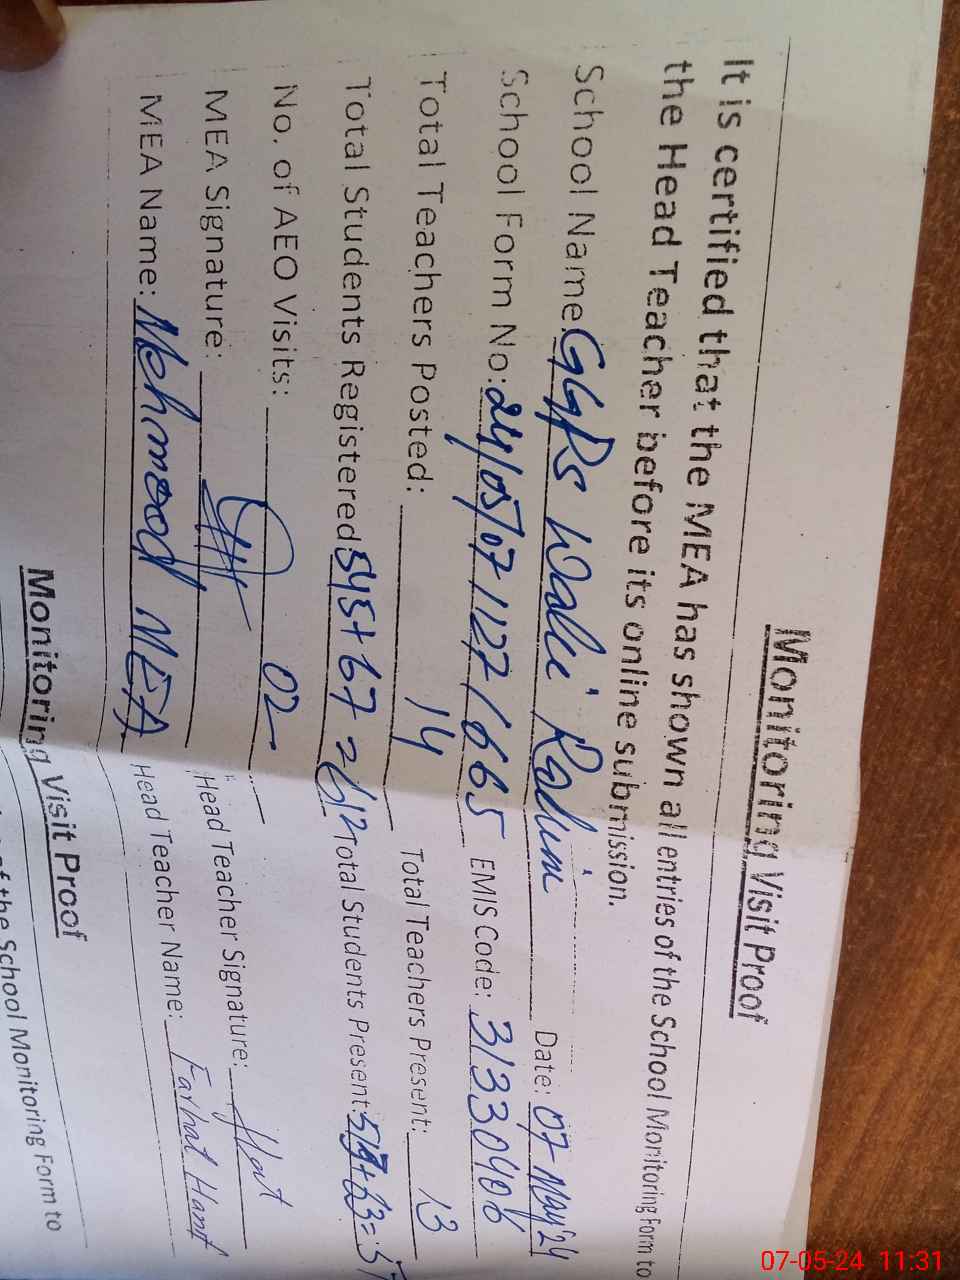 Monitoring Visit Proof
It is certified that the MEA has shown all entries of the School Monitoring Form to
the Head Teacher before its online submission.
School Name: GGPS Wali Rahim Date: 07 May 24
School Form No: 24/05/07/127/665 EMIS Code: 31330406
Total Teachers Posted: 14 Total Teachers Present: 13
Total Students Registered 545+67=612 Total Students Present:
No. of AEO Visits: 02
MEA Signature: Head Teacher Signature:
MEA Name: Mehmood MEA Head Teacher Name: Farhat
Monitoring Visit Proof
of the School Monitoring Form to
07-05-24 11:31